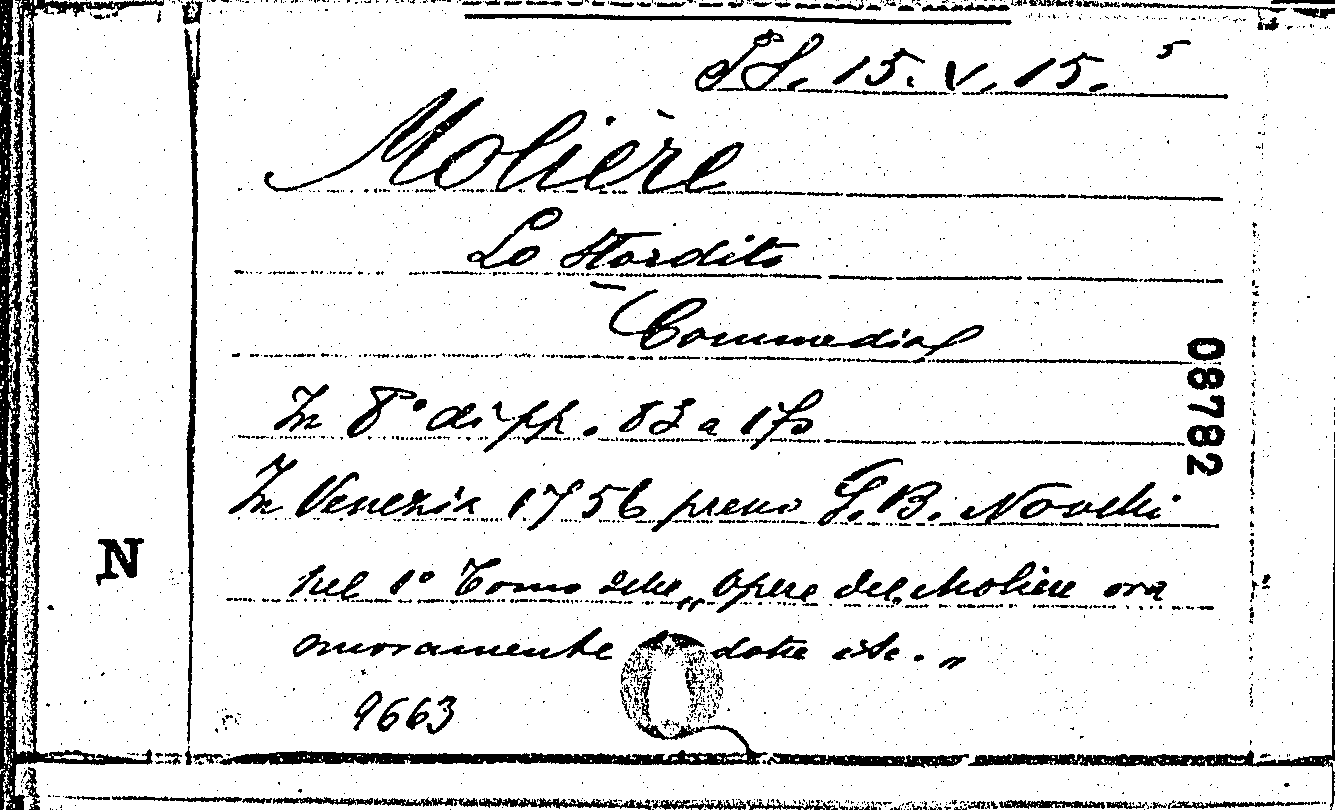 SS. 15. V. 15. 5
Molière
Lo Stordito
Commedia
In 8° di pp. 83 a 170
08782
In Venezia 1756 presso G. B. Novelli
N
nel 1° Tomo delle „ Opere del Molière ora
nuovamente dotte etc. „
9663